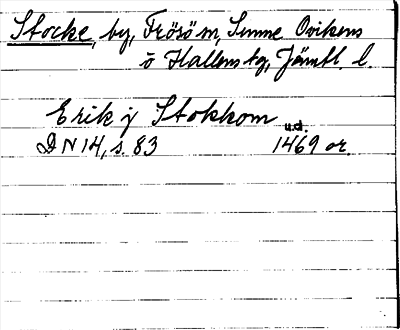 Stocke, by, Frösö sn, Sunne Ovikens
o Hallens tg, Jämtl. l.
Erik j Stokkom
u.d.
DN 14, s. 83 1469 or.